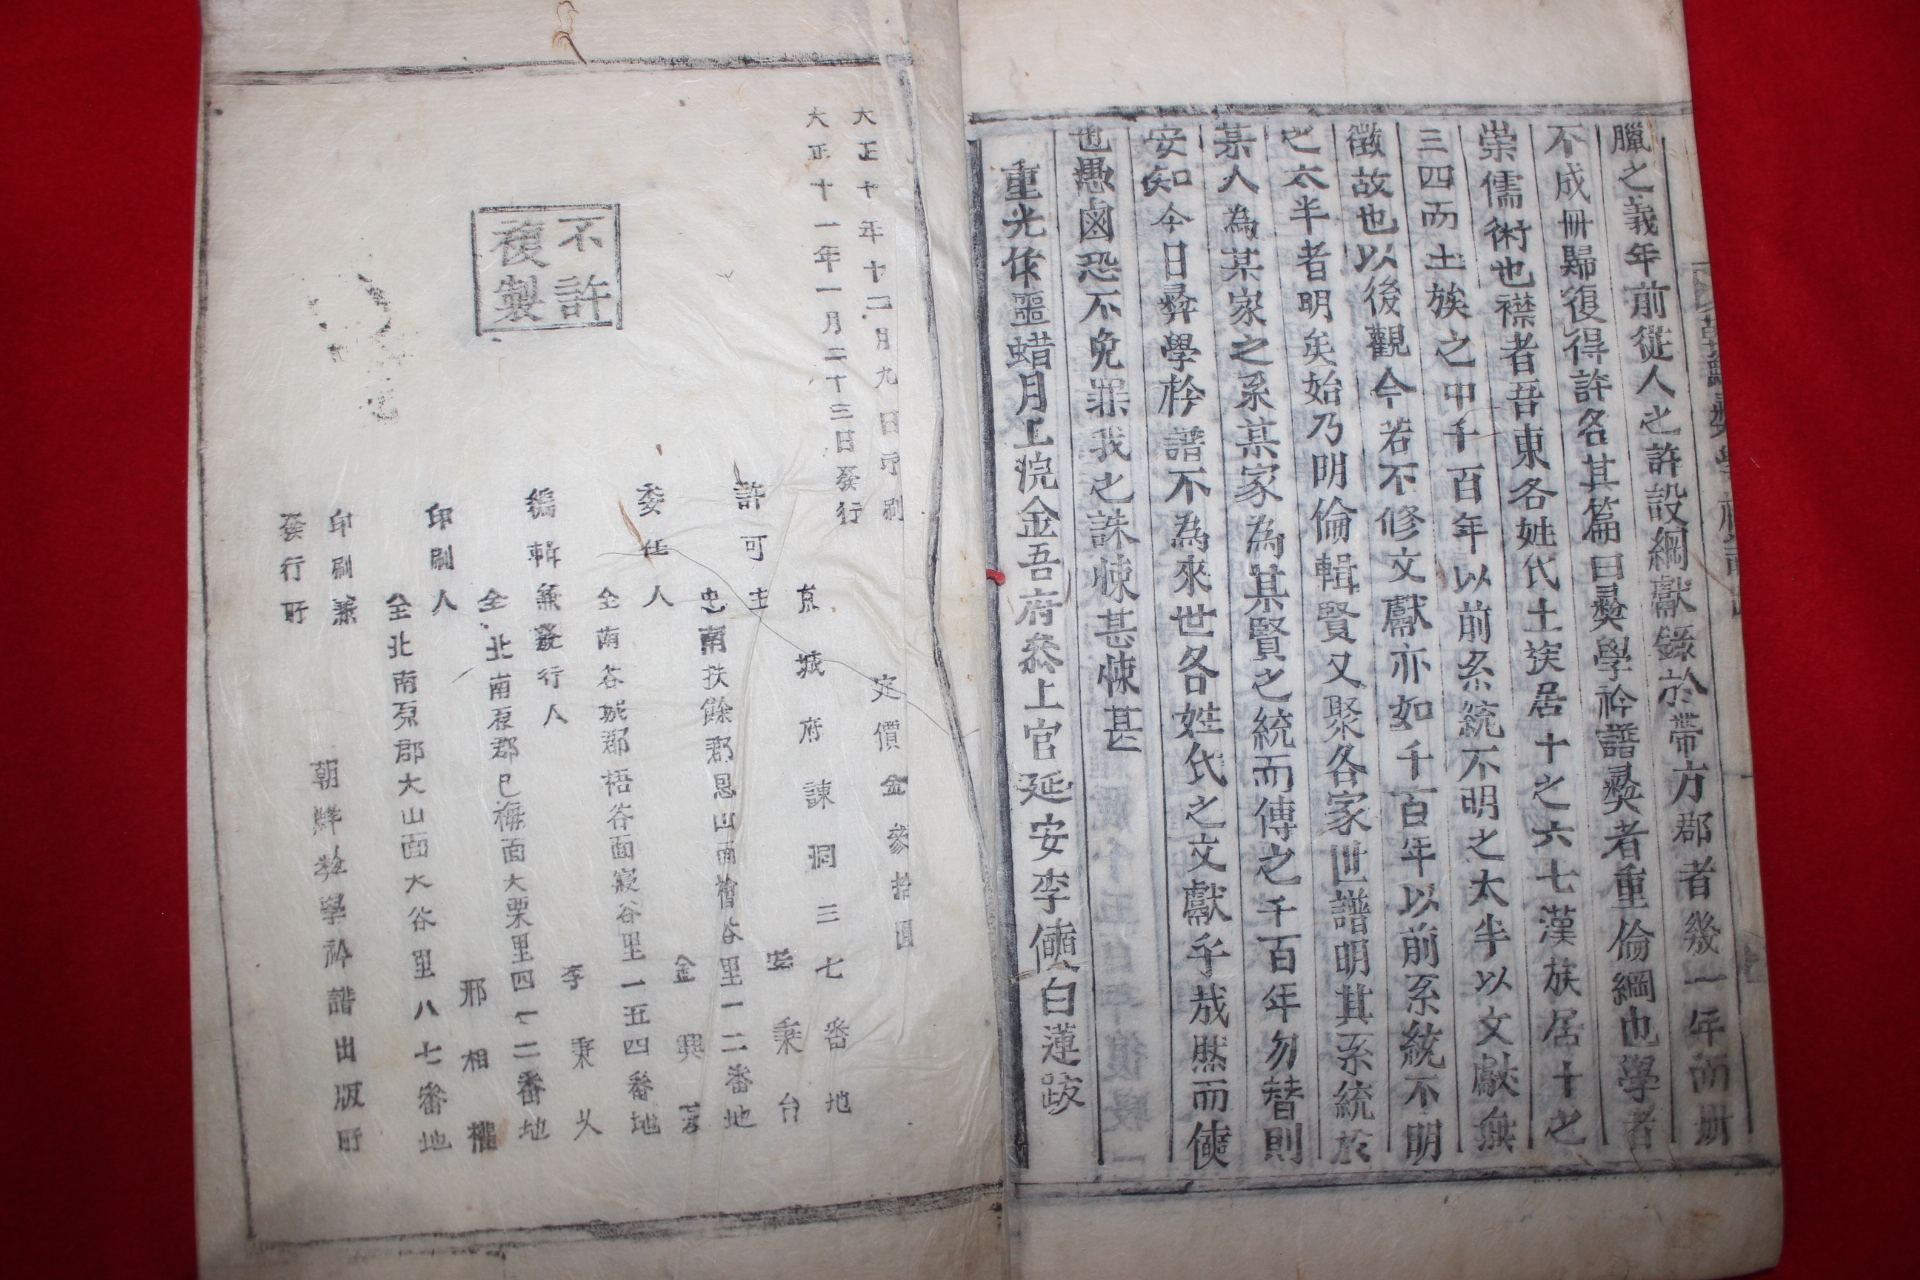 臘之義年前從人之許設綱獻錄於帶方郡者幾一年而册
不成册歸復得許各其篇曰彛學衿譜彛者重倫綱也學者
崇儒術也襟者吾東各姓代土族居十之六七漢族居十之
三四而土族之中千百年以前系統不明之太半以文獻無
徵故也以後觀今若不修文獻亦如千百年以前系統不明
之太半者明矣始乃明倫輯賢又聚各家世譜明其系統於
某人為某家之系某家為某賢之統而傳之千百年勿替則
安知今日彛學衿譜不為來世各姓氏之文獻乎哉然而傾
也愚鹵恐不免罪我之誅悚甚悚甚
重光作噩蜡月上浣金吾府叅上官延安李白蓮跋
大正十年十二月九日印刷
大正十一年一月二十三日發行
定價金參拾圓
不許複製
京城府諫洞三七番地
許可主 安秉台
忠南扶餘郡恩山面檜谷里一二番地
委任人 金興
仝南谷城郡梧谷面寢谷里一五四番地
編輯兼發行人 李秉
仝北南原郡巳梅面大栗里四一二番地
印刷人 邢相權
仝北南原郡大山面大谷里八七番地
印刷兼
發行所
朝鮮彛學衿譜出版所